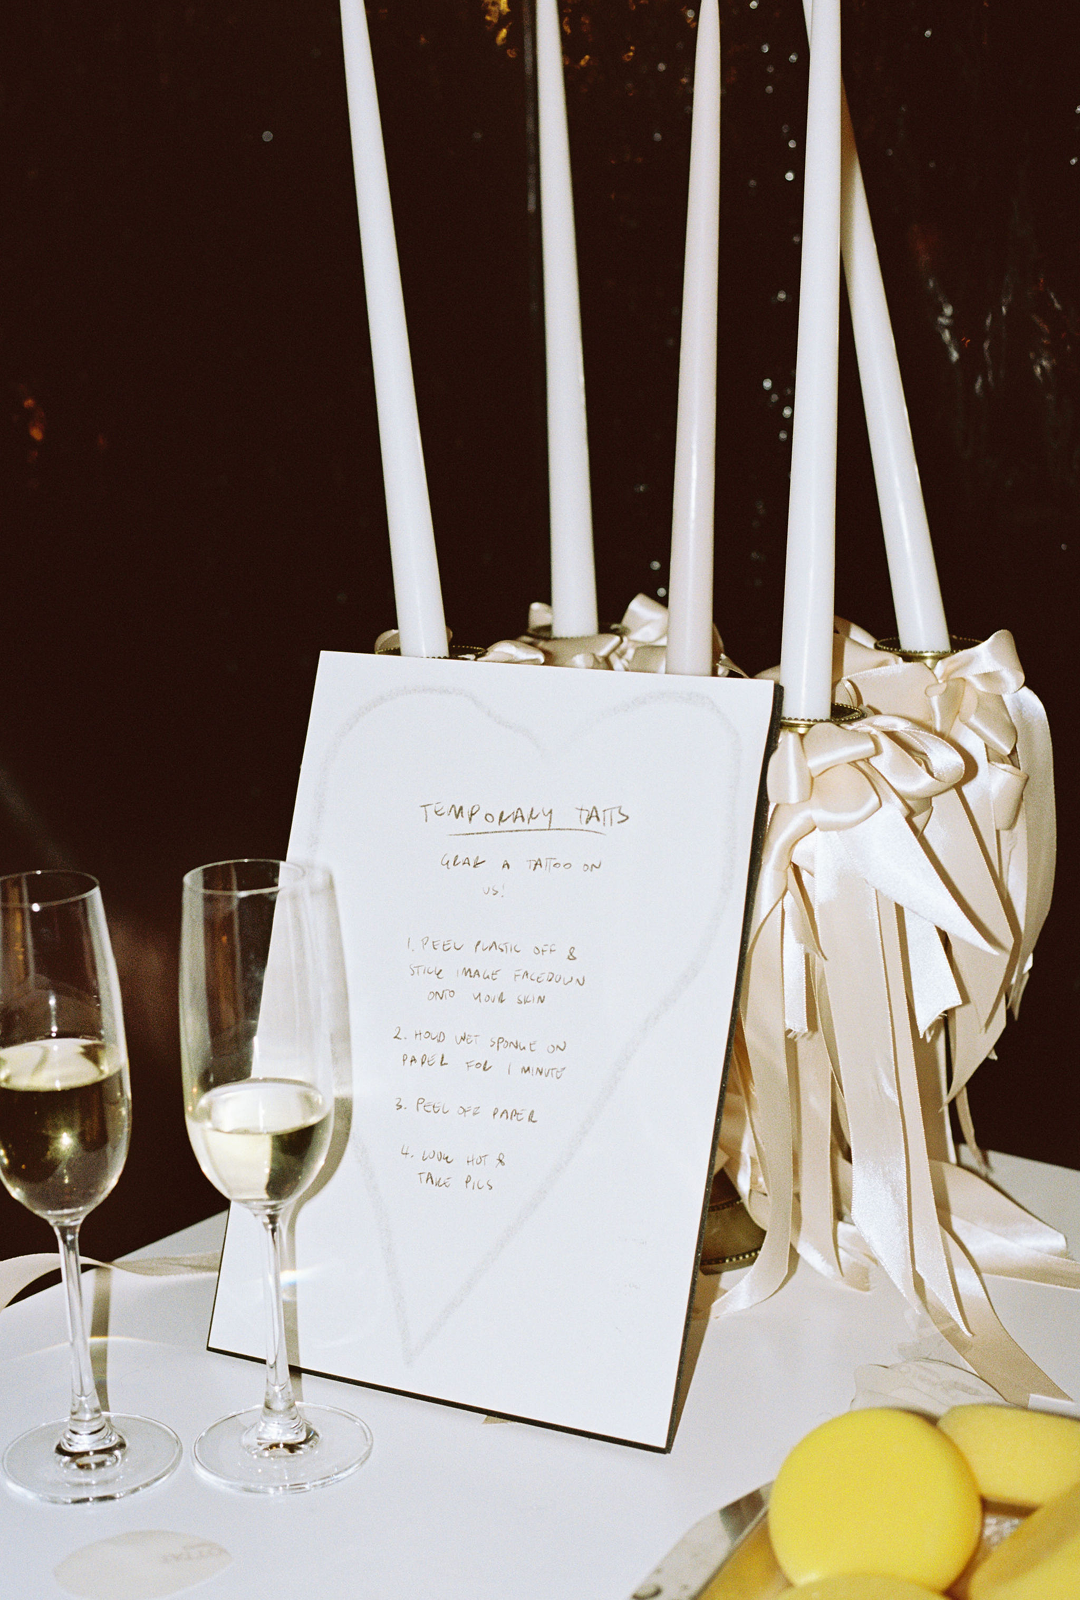 TEMPORARY TATTS
GRAB A TATTOO ON
US!
1. PEEL PLASTIC OFF &
STICK IMAGE FACEDOWN
ONTO YOUR SKIN
2. HOLD WET SPONGE ON
PAPER FOR 1 MINUTE
3. PEEL OFF PAPER
4. LOOK HOT &
TAKE PICS